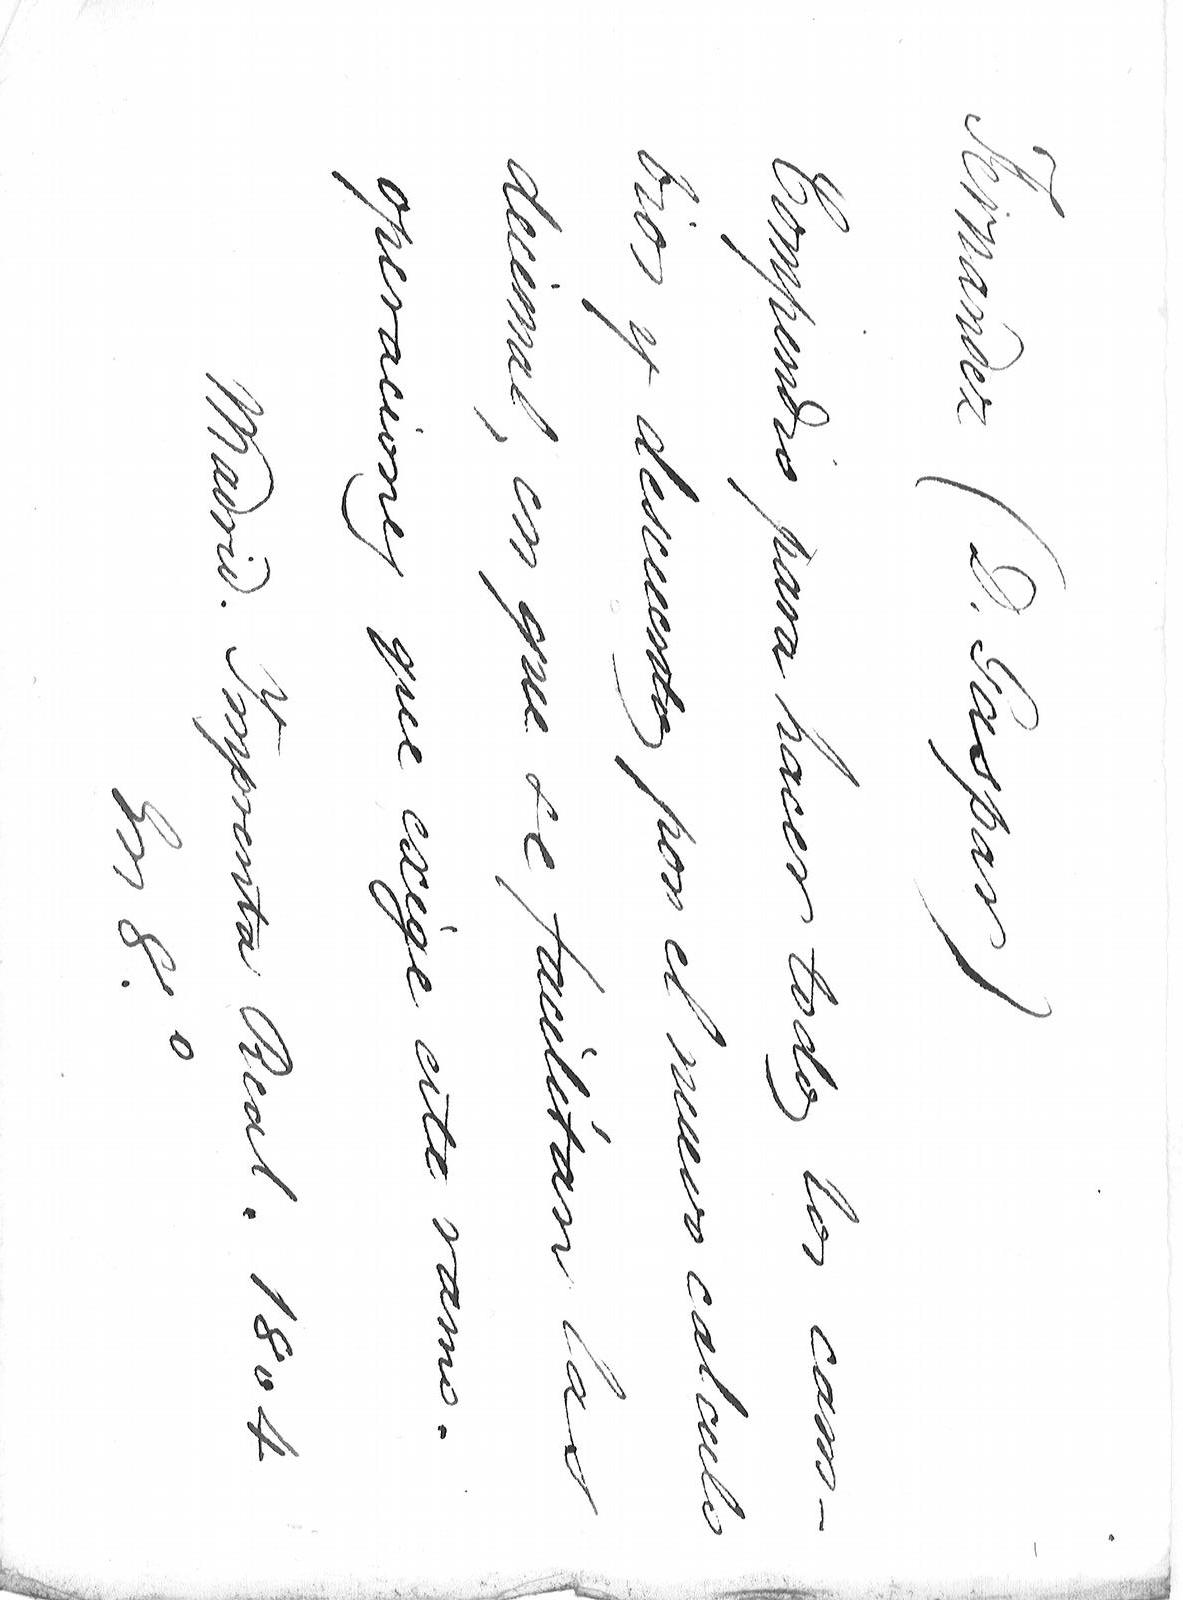 Fernandez (D. Gaspar)
Compendio para hacer todos los cam-
bios y descuentos por el nuevo calculo
decimal, en que se facilitan las
operaciones que exige este ramo.
Madrid. Ymprenta Real. 1804
En 8.º